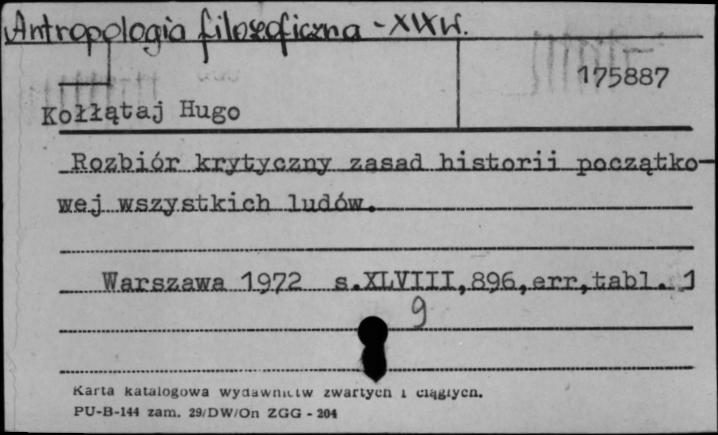 Antropologia filozoficzna - XIX w.
175887
Kołłątaj Hugo
Rozbiór krytyczny zasad historii początko-
wej wszystkich ludów.
Warszawa 1972 s.XLVIII,896,err,tabl. 1
9
Karta katalogowa wydawnictw zwartych i ciągłych.
PU-B-144 zam. 29/DW/On ZGG - 204